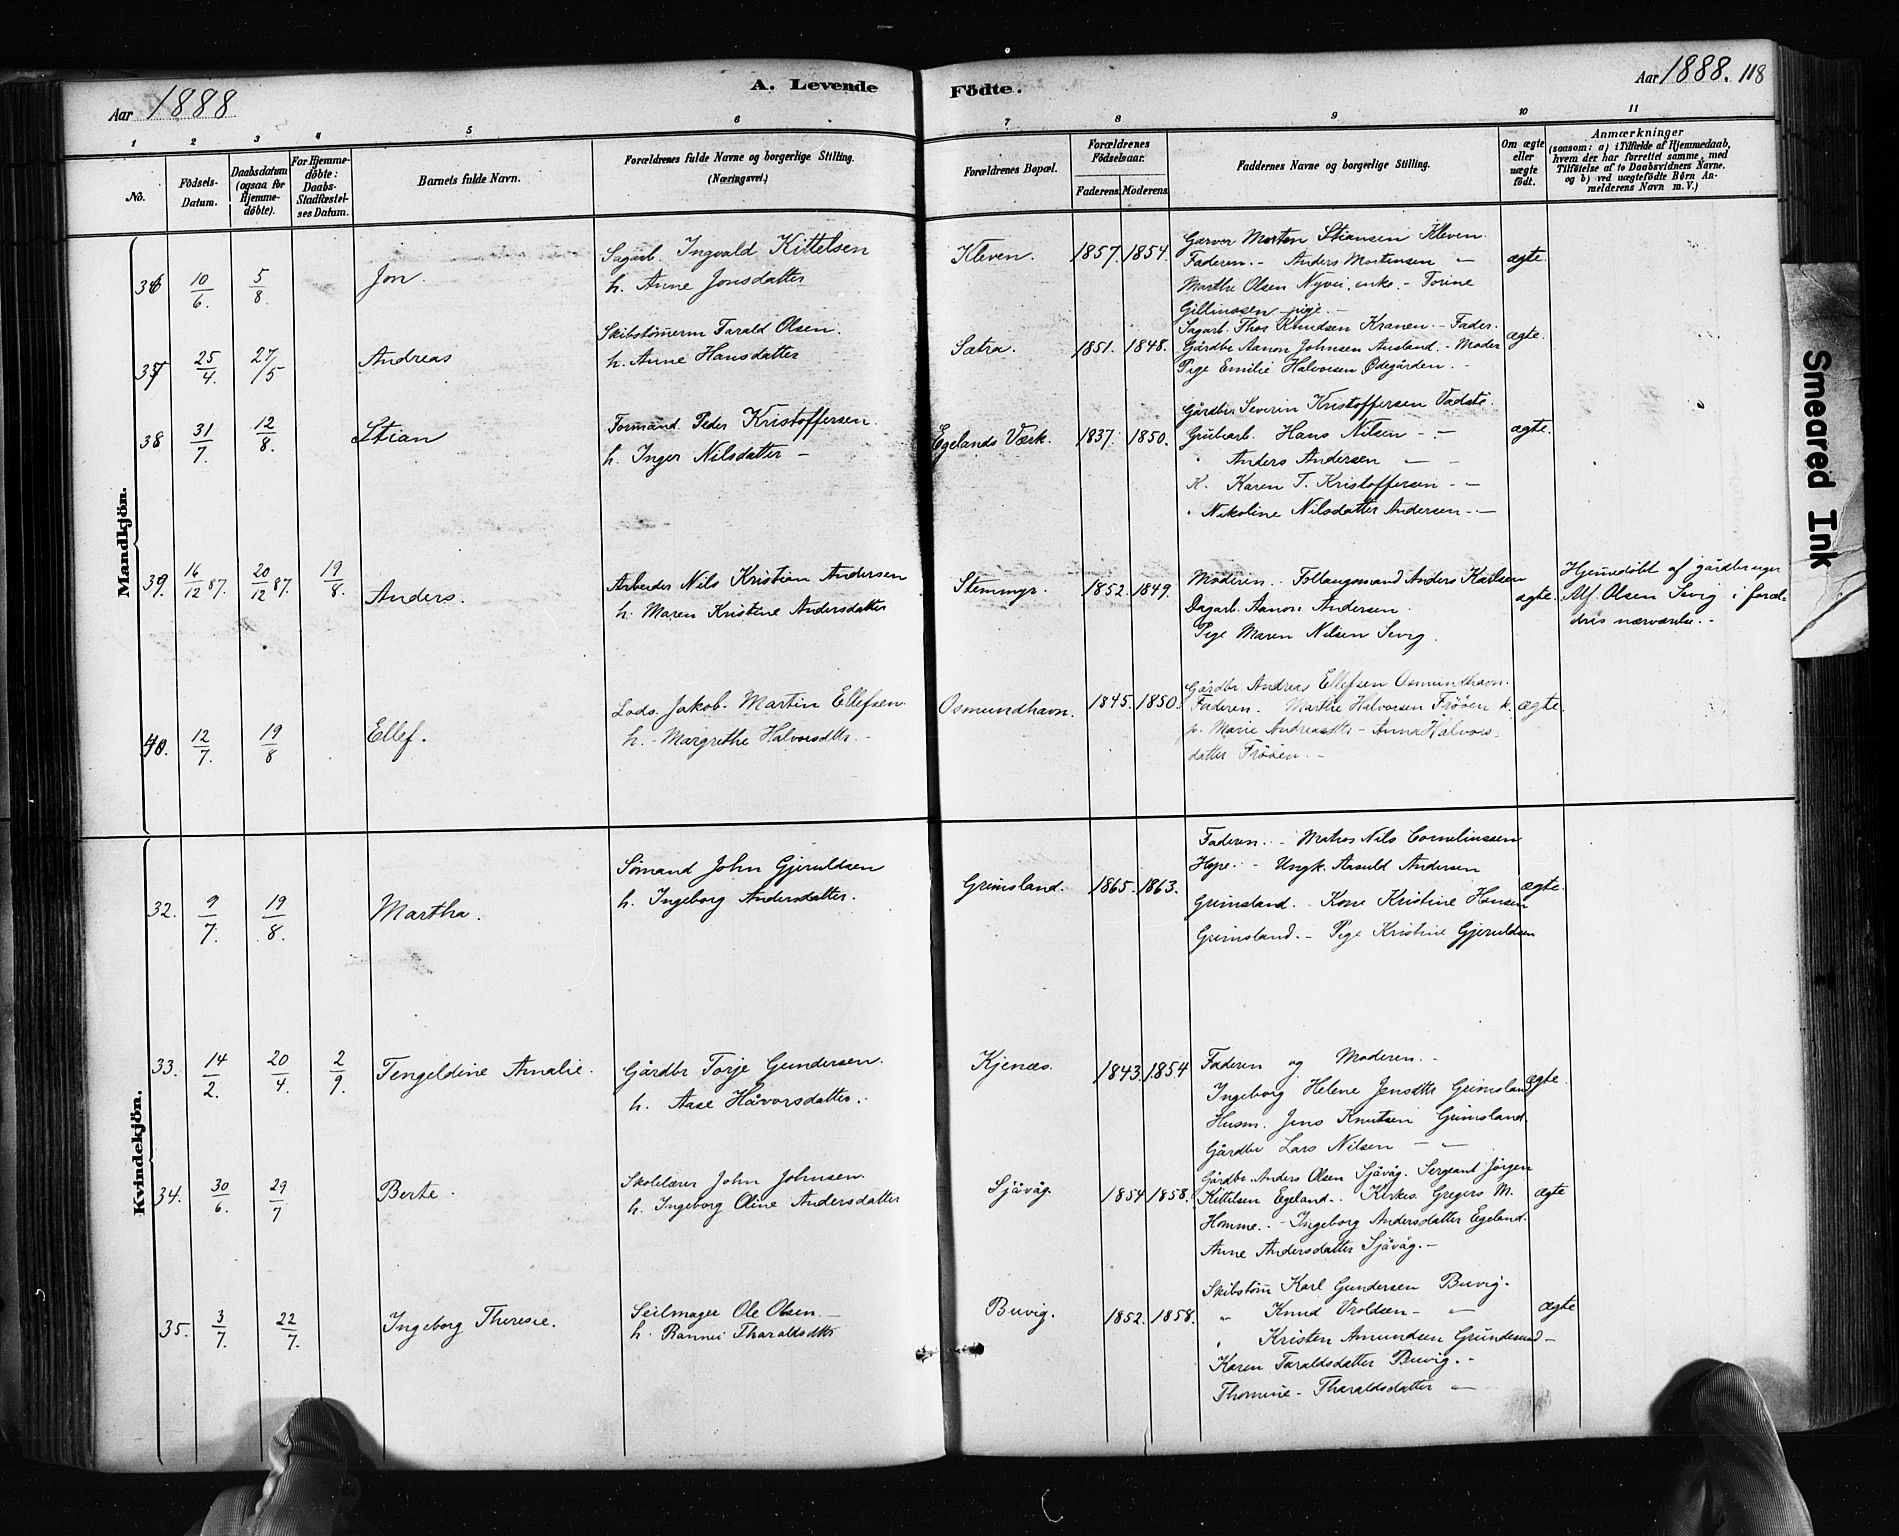 Aar 1888
A. Levende
Födte.
Aar 1888. 118
1 2 3 4 5 6 7 8 9 10 11
No.
Födsels-Datum.
Daabsdatum (ogsaa for Hjemme-döbte).
For Hjemme-döbte: Daabs-Stadfæstel-ses Datum.
Barnets fulde Navn.
Forældrenes fulde Navne og borgerlige Stilling. (Næringsvei.)
Forældrenes Bopæl.
Forældrenes Födselsaar.
Faderens. Moderens.
Faddernes Navne og borgerlige Stilling.
Om ægte eller uægte födt.
Anmærkninger
(saasom: a) i Tilfælde af Hjemmedaab, hvem der har forrettet samme, med Tilföielse af to Daabsvidners Navne. og b) ved uægtefödte Börn An-melderens Navn m.V.)
Mandkjön.
36 10/6. 5/8. Jon. Sagarb. Ingvald Kittelsen
h. Anne Jonsdatter
Kleven. 1857. 1854.
Garver Morten Stiansen Kleven.
Faderen. - Anders Mortensen "
Marthe Olsen Nyvei, enke. - Torine
pige -
ægte.
37 25/4. 27/5 Andreas
Skibstömerm Tarald Olsen.
h. Anne Hansdatter
Sætra. 1851. 1848.
Sagarb. Thor Knudsen Kranen. - Fader.
Gårdbr Aanon Johnsen Ausland. - Moder
Pige Emilie Halvorsen Ødegården. -
ægte.
38 31/7. 12/8. Stian
Formand Peder Kristoffersen.
h. Inger Nilsdatter -
Egelands Værk. 1837. 1850.
Gårdbr. Severin Kristoffersen
Grubearb. Hans Nilsen - -
" Anders Andersen - -
K. Karen T. Kristoffersen - -
" Nikoline Nilsdatter Andersen -
ægte.
39. 16/12 87. 20/12 87. 19/8. Anders.
Arbeider Nils Kristian Andersen
h. Maren Kristine Andersdatter
Stemmyr. 1852. 1849.
Moderen. Anders Karlsen
Dagarb. Aanon Andersen.
Pige Maren Nilsen Sevig.
ægte.
Hjemedöbt af gårdbruger
Alf. Olsen Sevig i foræl-
dris nærværelse. -
40. 12/7. 19/8 Ellef.
Lods. Jakob Martin Ellefsen
h. - Margrethe Halvorsdtr. -
Osmundhavn. 1845. 1850.
Gårdbr. Andreas Ellefsen Osmundhavn.
Faderen. Marthe Halvorsen Frööen k.
p. Marie Andreasdtr - Anna Halvors-
datter Frööen. -
ægte.
Kvindekjön.
32. 9/7. 19/8. Martha.
Sömand John Gjeruldsen
h. Ingeborg Andersdatter.
Grimsland. 1865. 1863.
Faderen. - Matros Nils Corneliussen
Hope. - Ungk. Aasuld Andersen
Grimsland. - Kone Kristine Hansen
Grimsland. - Pige Kristine Gjeruldsen
ægte.
33. 14/2. 20/4. 2/9. Tengeldine Amalie.
Gårdbr Torje Gundersen.
h. Aase Håvorsdatter.
Kjenæs. 1843. 1854
Faderen og Moderen. -
Ingeborg Helene Jensdtr Grimsland
Husm. Jens Knutsen Grimsland.
Gårdbr Lars Nilsen - "
ægte.
34. 30/6. 29/7 Berte.
Skolelærer John Johnsen.
h. Ingeborg Oline Andersdatter
Sjåvåg. 1854. 1858.
Gårdbr. Anders Olsen Sjåvåg. Sergeant Jörgen
Kittelsen Egeland. - Kirkes. Gregers M.
Homme. - Ingeborg Andersdatter Egeland.
Anne Andersdatter Sjåvåg. -
ægte
35. 3/7. 22/7. Ingeborg Theresie.
Seilmager Ole Olsen -
h. Rannei Tharaldsdtr
Buvig. 1852. 1858.
Skibstöm Karl Gundersen Buvig.
" Knud Vroldsen - "
" Kristen Amundsen Grundesund -
Karen Taraldsdatter Buvig. -
Thomine - Tharaldsdatter "
ægte
Smeared Ink